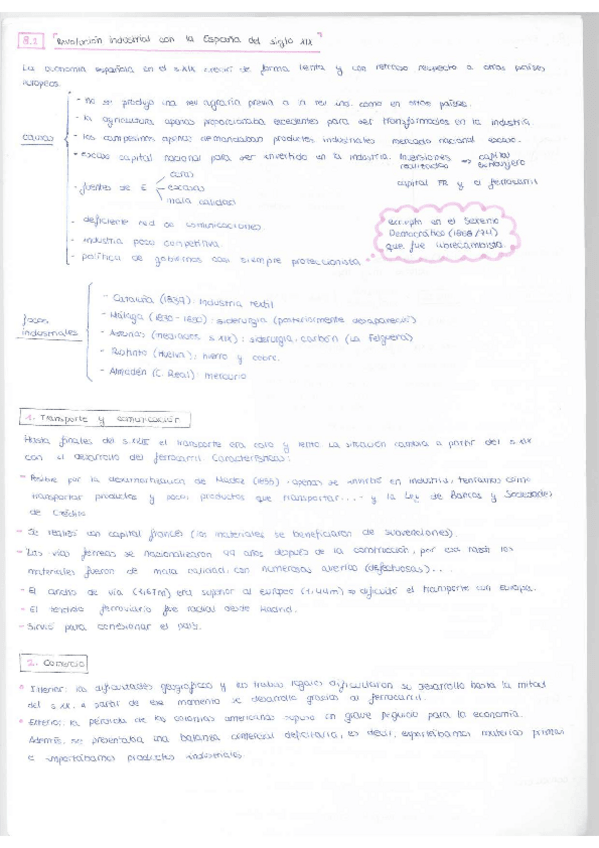 8.2 "Revolución industrial con la España del siglo XIX"
La economía española en el s.XIX creció de forma lenta y con retraso respecto a otros países
europeos.
causas
- no se produjo una rev agraria previa a la rev ind. como en otros países.
- la agricultura apenas proporcionaba excedentes para ser transformados en la industria.
- los campesinos apenas demandaban productos industriales mercado nacional escaso.
- escaso capital nacional para ser invertido en la industria. Inversiones realizadas => capital extranjero
capital FR y el ferrocarril
- fuentes de E
caras
escasas
mala calidad
- deficiente red de comunicaciones.
- industria poco competitiva.
- política de gobiernos casi siempre proteccionista
excepto en el Sexenio
Democrático (1868/74)
que fue librecambista.
focos
industriales
- Cataluña (1837): Industria textil
- Málaga (1830-1850): siderurgia (posteriormente desapareció)
- Asturias (mediados s.XIX): siderurgia, carbón (La Felguera)
- Riotinto (Huelva): hierro y cobre.
- Almadén (C. Real) mercurio
1. Transporte y comunicación
Hasta finales del s.XVIII el transporte era caro y lento La situación cambia a partir del s.XIX
con el desarrollo del ferrocarril. Características:
- Posible por la desamortización de Madoz (1855) - apenas se invirtió en industria, teníamos cómo
transportar productos y pocos productos que transportar...- y la Ley de Bancos y Sociedades
de Crédito
- Se realizó con capital francés (los materiales se beneficiaron de subvenciones).
- Las vías férreas se nacionalizaron 99 años después de la construcción, por esa razón los
materiales fueron de mala calidad, con numerosas averías (defectuosas)...
- El ancho de vía (1,67m) era superior al europeo (1,44m) => dificultó el transporte con Europa.
- El tendido ferroviario fue radial desde Madrid.
- Sirvió para conexionar el país.
2. Comercio
• Interior: las dificultades geográficas y las trabas legales dificultaron su desarrollo hasta la mitad
del s.XIX. a partir de ese momento se desarrolló gracias al ferrocarril.
• Exterior: la pérdida de las colonias americanas supuso un grave perjuicio para la economía.
Además, se presentaba una balanza comercial deficitaria, es decir, exportábamos materias primas
e importábamos productos industriales.